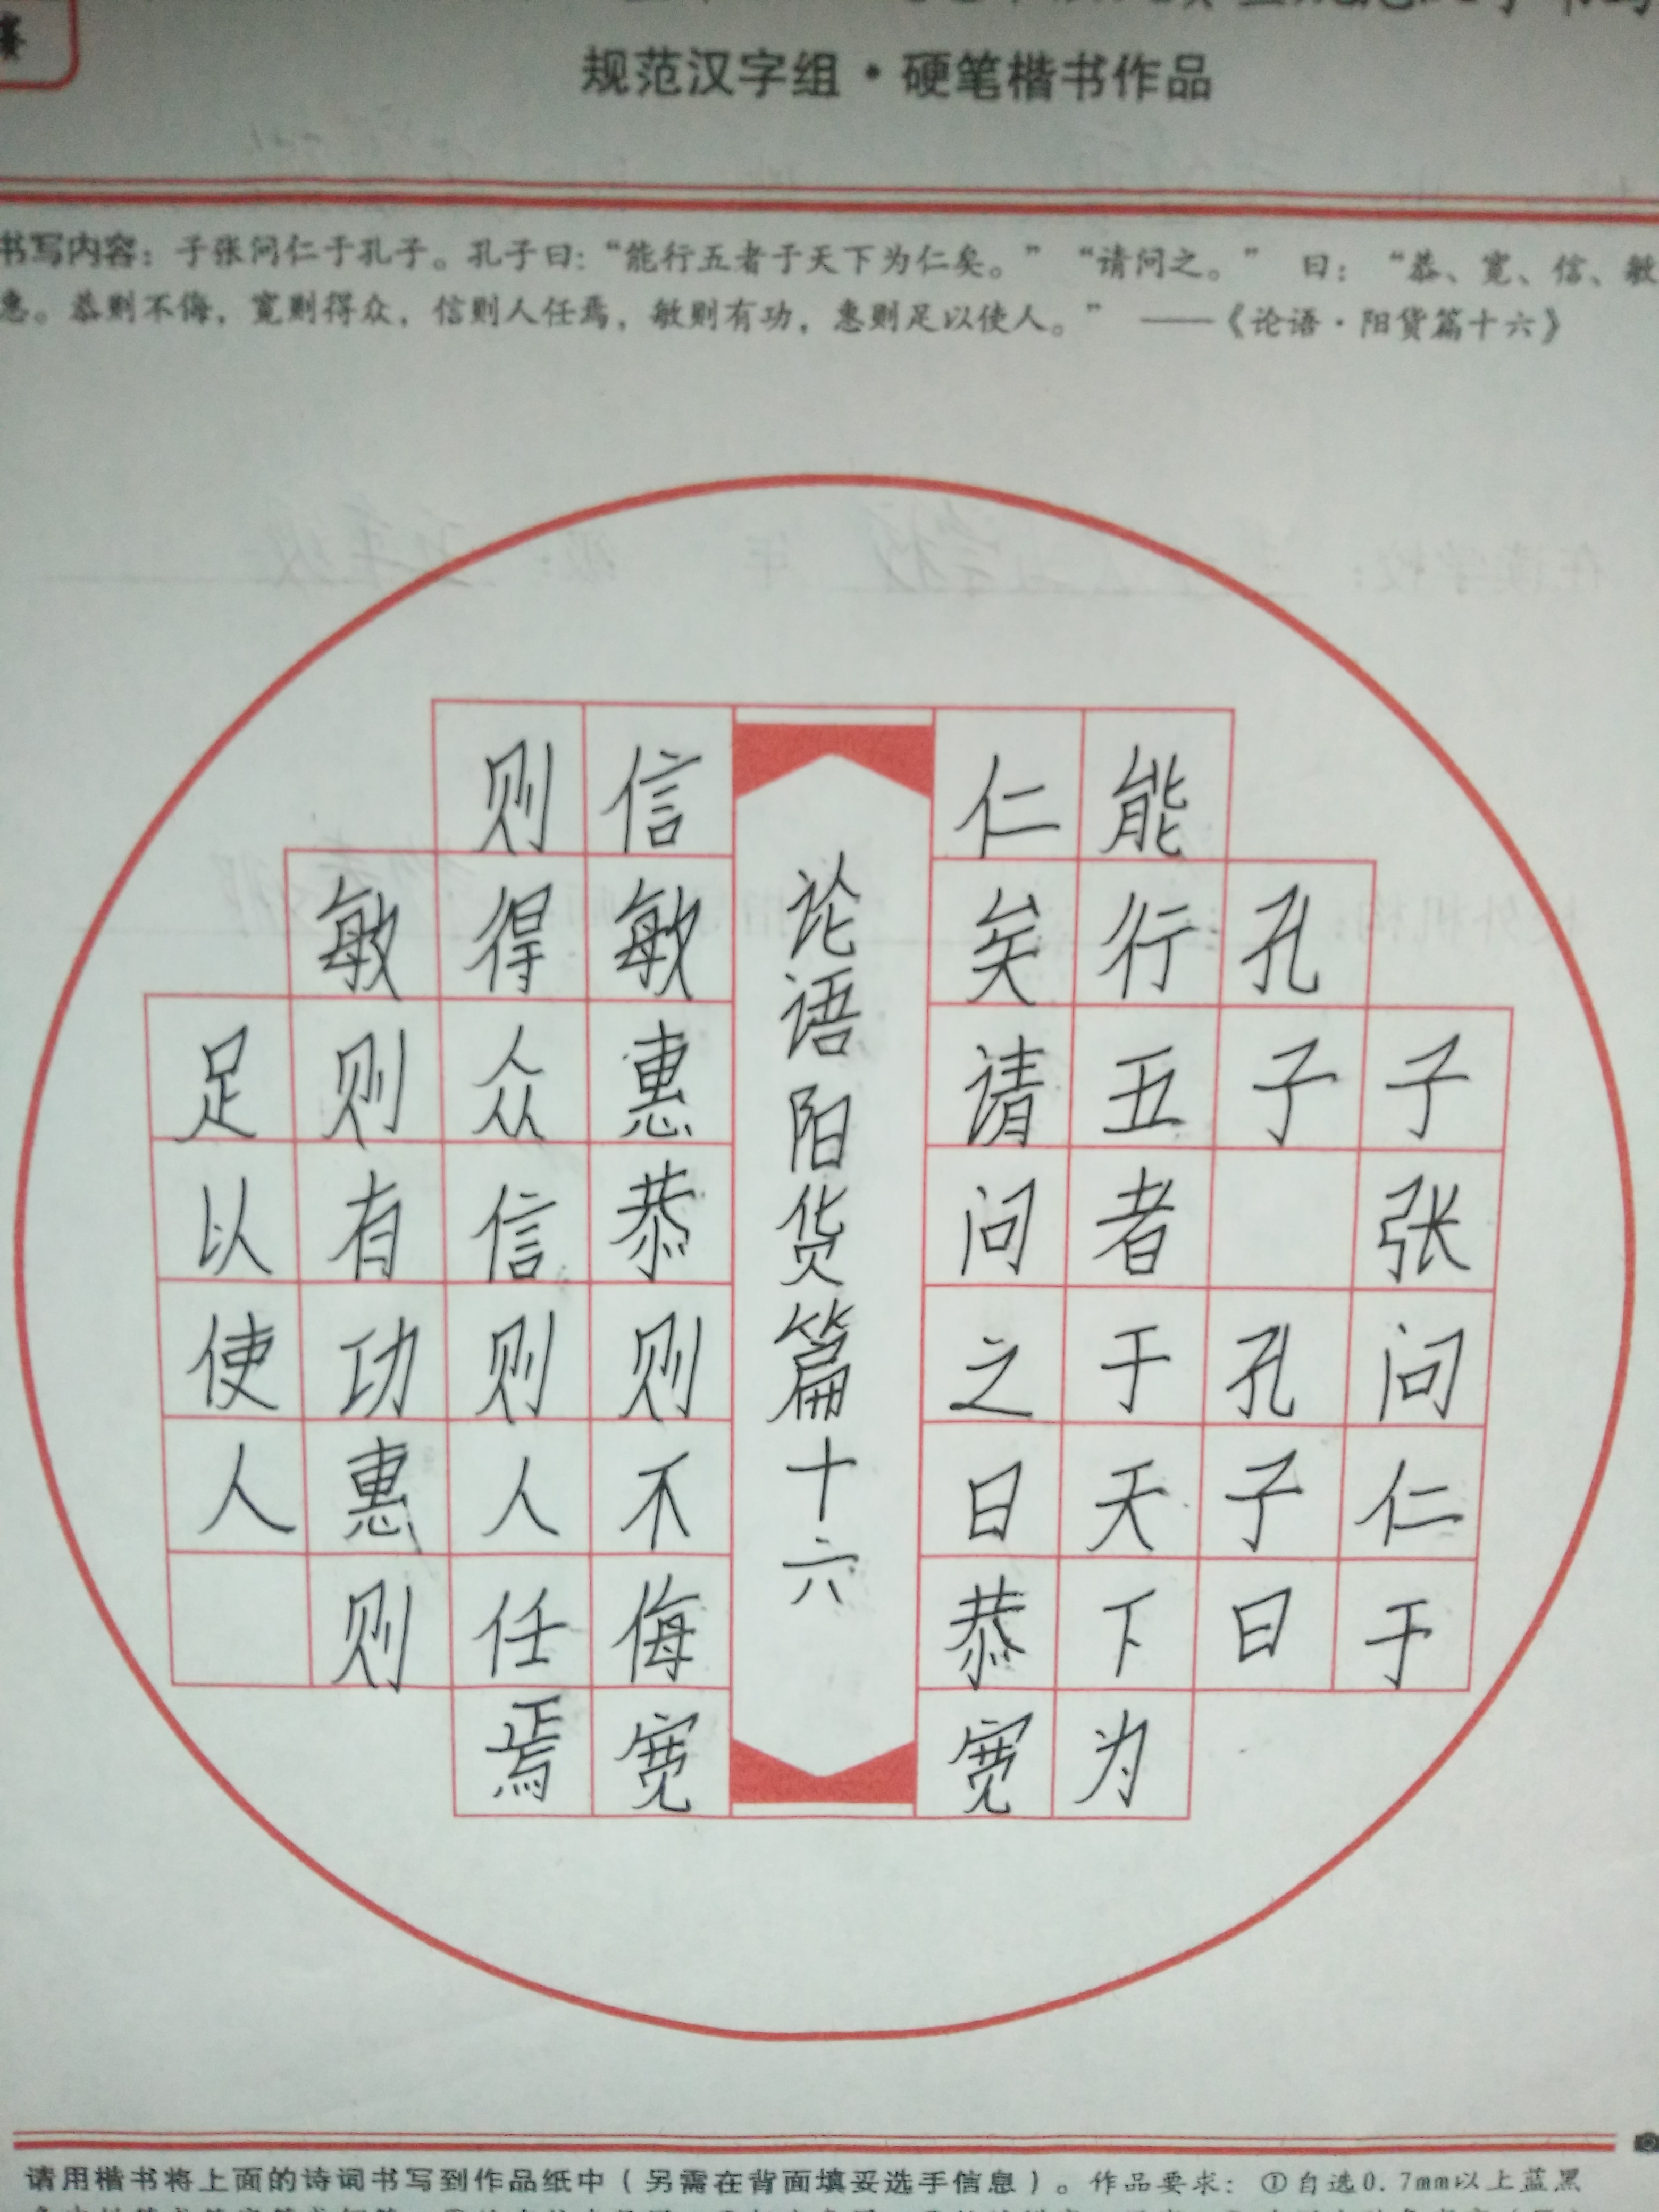 赛
规范汉字组·硬笔楷书作品
书写内容：子张问仁于孔子。孔子曰：“能行五者于天下为仁矣。”“请问之。” 曰：“恭、宽、信、敏
惠。恭则不侮，宽则得众，信则人任焉，敏则有功，惠则足以使人。” ——《论语·阳货篇十六》
子张问仁于
孔子 孔子曰
能行五者于天下为
仁矣请问之曰恭宽
论语阳货篇十六
信敏惠恭则不侮宽
则得众信则人任焉
敏则有功惠则
足以使人
请用楷书将上面的诗词书写到作品纸中（另需在背面填妥选手信息）。作品要求：①自选0.7mm以上蓝黑